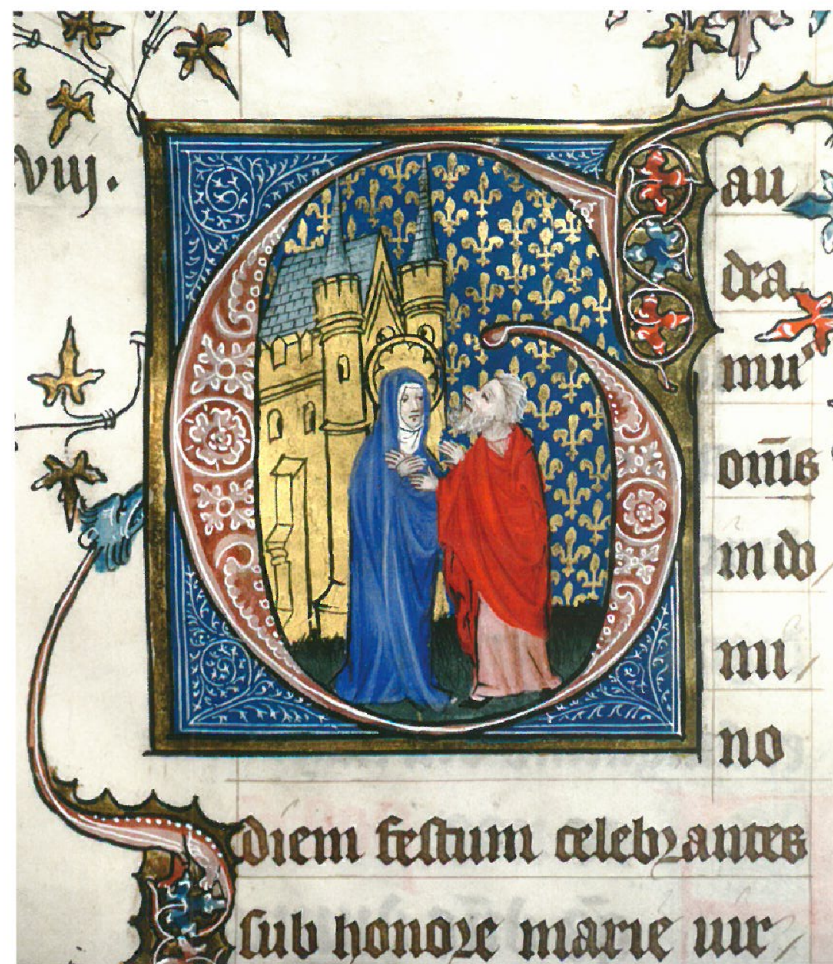 viij.
G au
dea
mu᾽
om̅s
in do
mi
no
diem festum celebrantes
sub honore marie uir